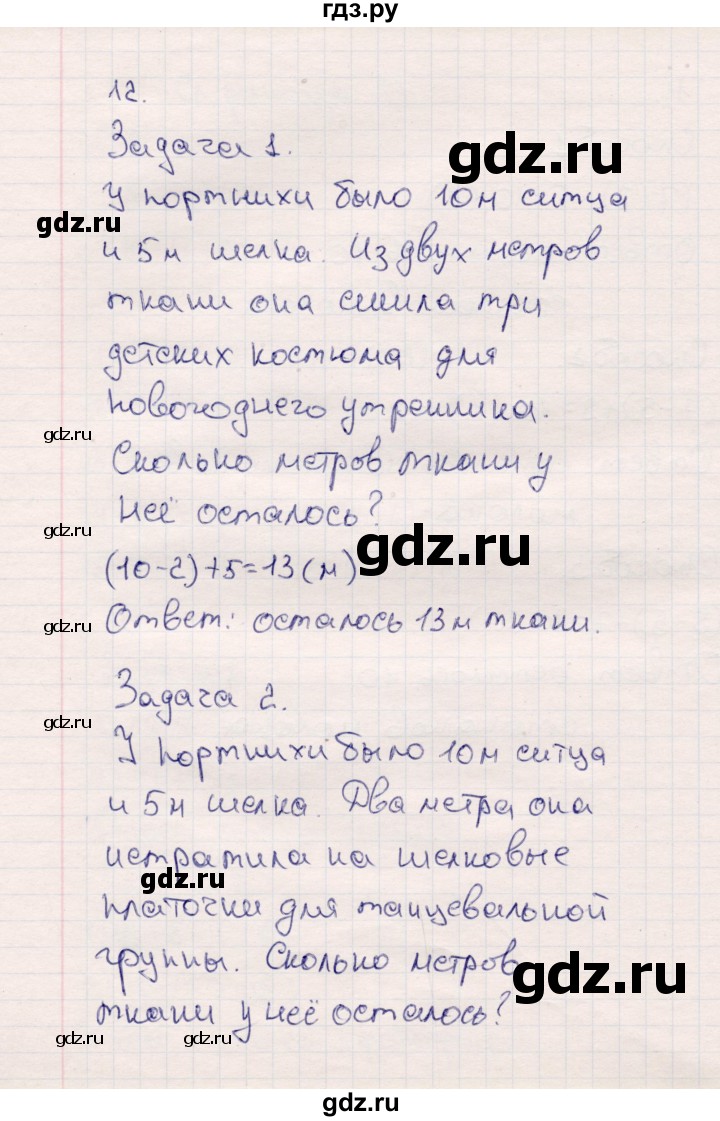 гдз.ру
12.
Задача 1.
gdz.ru
У портнихи было 10 м ситца
gdz.ru
и 5 м шелка. Из двух метров
ткани она сшила три
детских костюма для
новогоднего утренника.
gdz.ru
Сколько метров ткани у
неё осталось?
gdz.ru
gdz.ru
(10-2)+5=13(м)
Ответ: осталось 13 м ткани.
gdz.ru
Задача 2.
gdz.ru
У портнихи было 10 м ситца
и 5 м шелка. Два метра она
истратила на шелковые
gdz.ru
платочки для танцевальной
группы. Сколько метров
gdz.ru
ткани у неё осталось?
gdz.ru
gdz.ru
gdz.ru